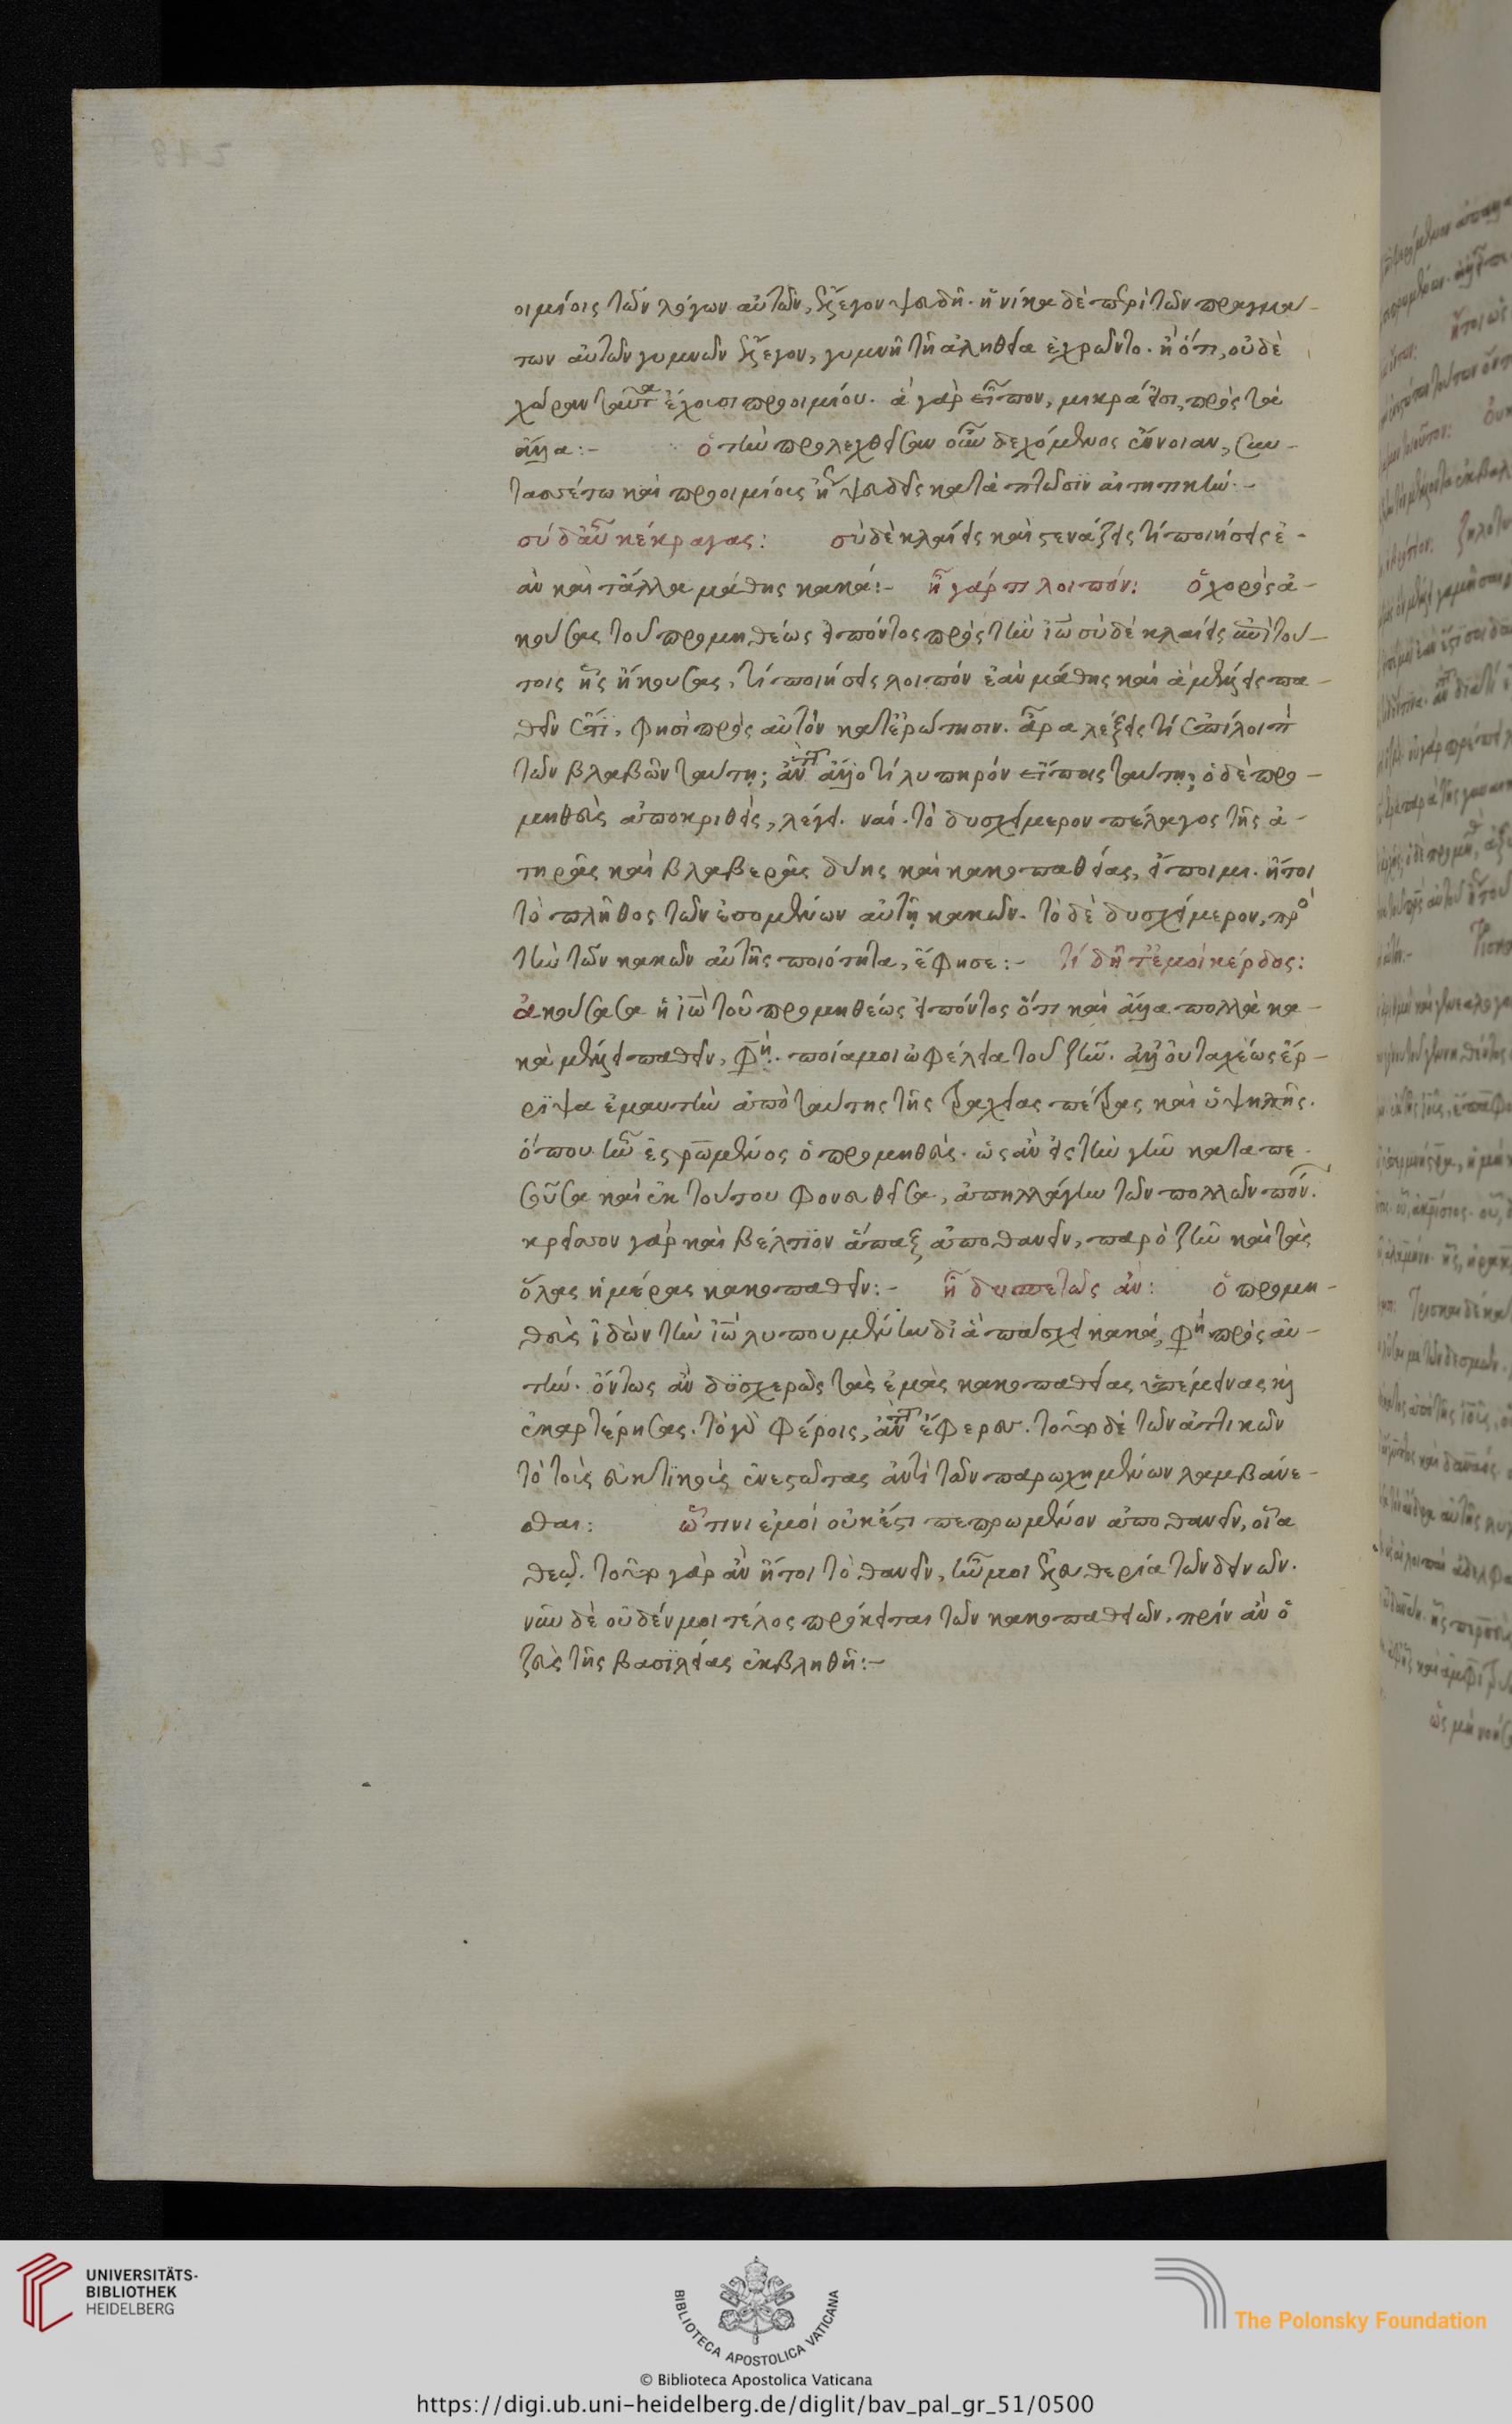 οιμίοις τῶν λόγων αὐτῶν, ἔλεγον ψευδῆ. ἡνίκα δὲ περὶ τῶν πραγμά-
των αὐτῶν γυμνῶν ἔλεγον, γυμνῇ τῇ ἀληθεία ἐχρῶντο. ἢ ὅτι, οὐδὲ
χώραν ταῦτα ἔχουσι προοιμίου. ἃ γὰρ εἶπον, μικρά εἰσι πρὸς τὰ
ἄλλα:- ὁ τὴν προλεχθεῖσαν οὖν δεχόμενος ἔννοιαν, συν-
τασσέτω καὶ προοιμίοις ἢ ψευδεῖς κατὰ πτῶσιν αἰτιατικήν:-
σύ δ' αὖ κέκραγας: σὺ δὲ κλαίεις καὶ στενάζεις τί ποιήσεις ἐ-
ὰν καὶ τἄλλα μάθης κακά:- ἦ γάρ τι λοιπόν: ὁ χορὸς ἀ-
κούσας τοῦ προμηθέως εἰπόντος πρὸς τὴν ἰὼ σὺ δὲ κλαίεις ἐπὶ τού-
τοις οἷς ἤκουσας, τί ποιήσεις λοιπόν ἐὰν μάθης καὶ ἃ μέλλεις πα-
θεῖν ἔτι, φησὶ πρὸς αὐτὸν κατερώτησιν. ἆρα λέξεις τί ἐπίλοιπον
τῶν βλαβῶν ταύτη; ἀντὶ ἄλλο τί λυπηρόν εἴποις ταύτη; ὁ δὲ προ-
μηθεὺς ἀποκριθεὶς, λέγει. ναί. τὸ δυσχείμερον πέλαγος τῆς ἀ-
τηρᾶς καὶ βλαβερᾶς δύης καὶ κακοπαθείας, εἴποιμι. ἤτοι
τὸ πλῆθος τῶν ἐσομένων αὐτῇ κακῶν. τὸ δὲ δυσχείμερον, πρὸ
τὴν τῶν κακῶν αὐτῆς ποιότητα, ἔφησε:- τί δῆτ' ἐμοὶ κέρδος:
ἀκούσασα ἡ ἰὼ τοῦ προμηθέως εἰπόντος ὅτι καὶ ἄλλα πολλὰ κα-
κὰ μέλλει παθεῖν, φη. ποία μοι ὠφέλεια τοῦ ζῆν. ἀλλ' οὐ ταχέως ἔρ-
ριψα ἐμαυτὴν ἀπὸ ταύτης τῆς τραχείας πέτρας καὶ ὑψηλῆς.
ὅπου ἦν ἐσταυρωμένος ὁ προμηθεύς. ὡς ἂν εἰς τὴν γῆν καταπε-
σοῦσα καὶ ἐκ τούτου φονευθεῖσα, ἀπηλλάγην τῶν πολλῶν πόνων.
κρεῖσσον γάρ καὶ βέλτιον ἅπαξ ἀποθανεῖν, παρὸ ζῆν καὶ τὰς
ὅλας ἡμέρας κακοπαθεῖν:- ἦ δυσπετῶς ἂν: ὁ προμη-
θεὺς ἰδὼν τὴν ἰὼ λυπουμένην δι' ἃ πάσχει κακά, φη πρὸς αὐ-
τήν. ὄντως ἂν δυσχερῶς τὰς ἐμὰς κακοπαθείας ὑπέμεινας καὶ
ἐκαρτέρησας. τὸ γὰρ φέροις, ἀντὶ ἔφερες. τοῦτο δὲ τῶν ἀττικῶν
τὸ τοὺς εὐκτικοὺς ἐνεστῶτας ἀντὶ τῶν παρωχημένων λαμβάνε-
σθαι: ᾧ τινι ἐμοί οὐκ ἔστι πεπρωμένον ἀποθανεῖν, οἷα
θεῷ. τοῦτο γὰρ ἂν ἤτοι τὸ θανεῖν, ἦν μοι ἐλευθερία τῶν δεινῶν.
νῦν δὲ οὐδέν μοι τέλος πρόκειται τῶν κακοπαθειῶν, πρίν ἂν ὁ
ζεὺς τῆς βασιλείας ἐκβληθῇ:-
UNIVERSITÄTS-
BIBLIOTHEK
HEIDELBERG
BIBLIOTECA APOSTOLICA VATICANA
The Polonsky Foundation
© Biblioteca Apostolica Vaticana
https://digi.ub.uni-heidelberg.de/diglit/bav_pal_gr_51/0500